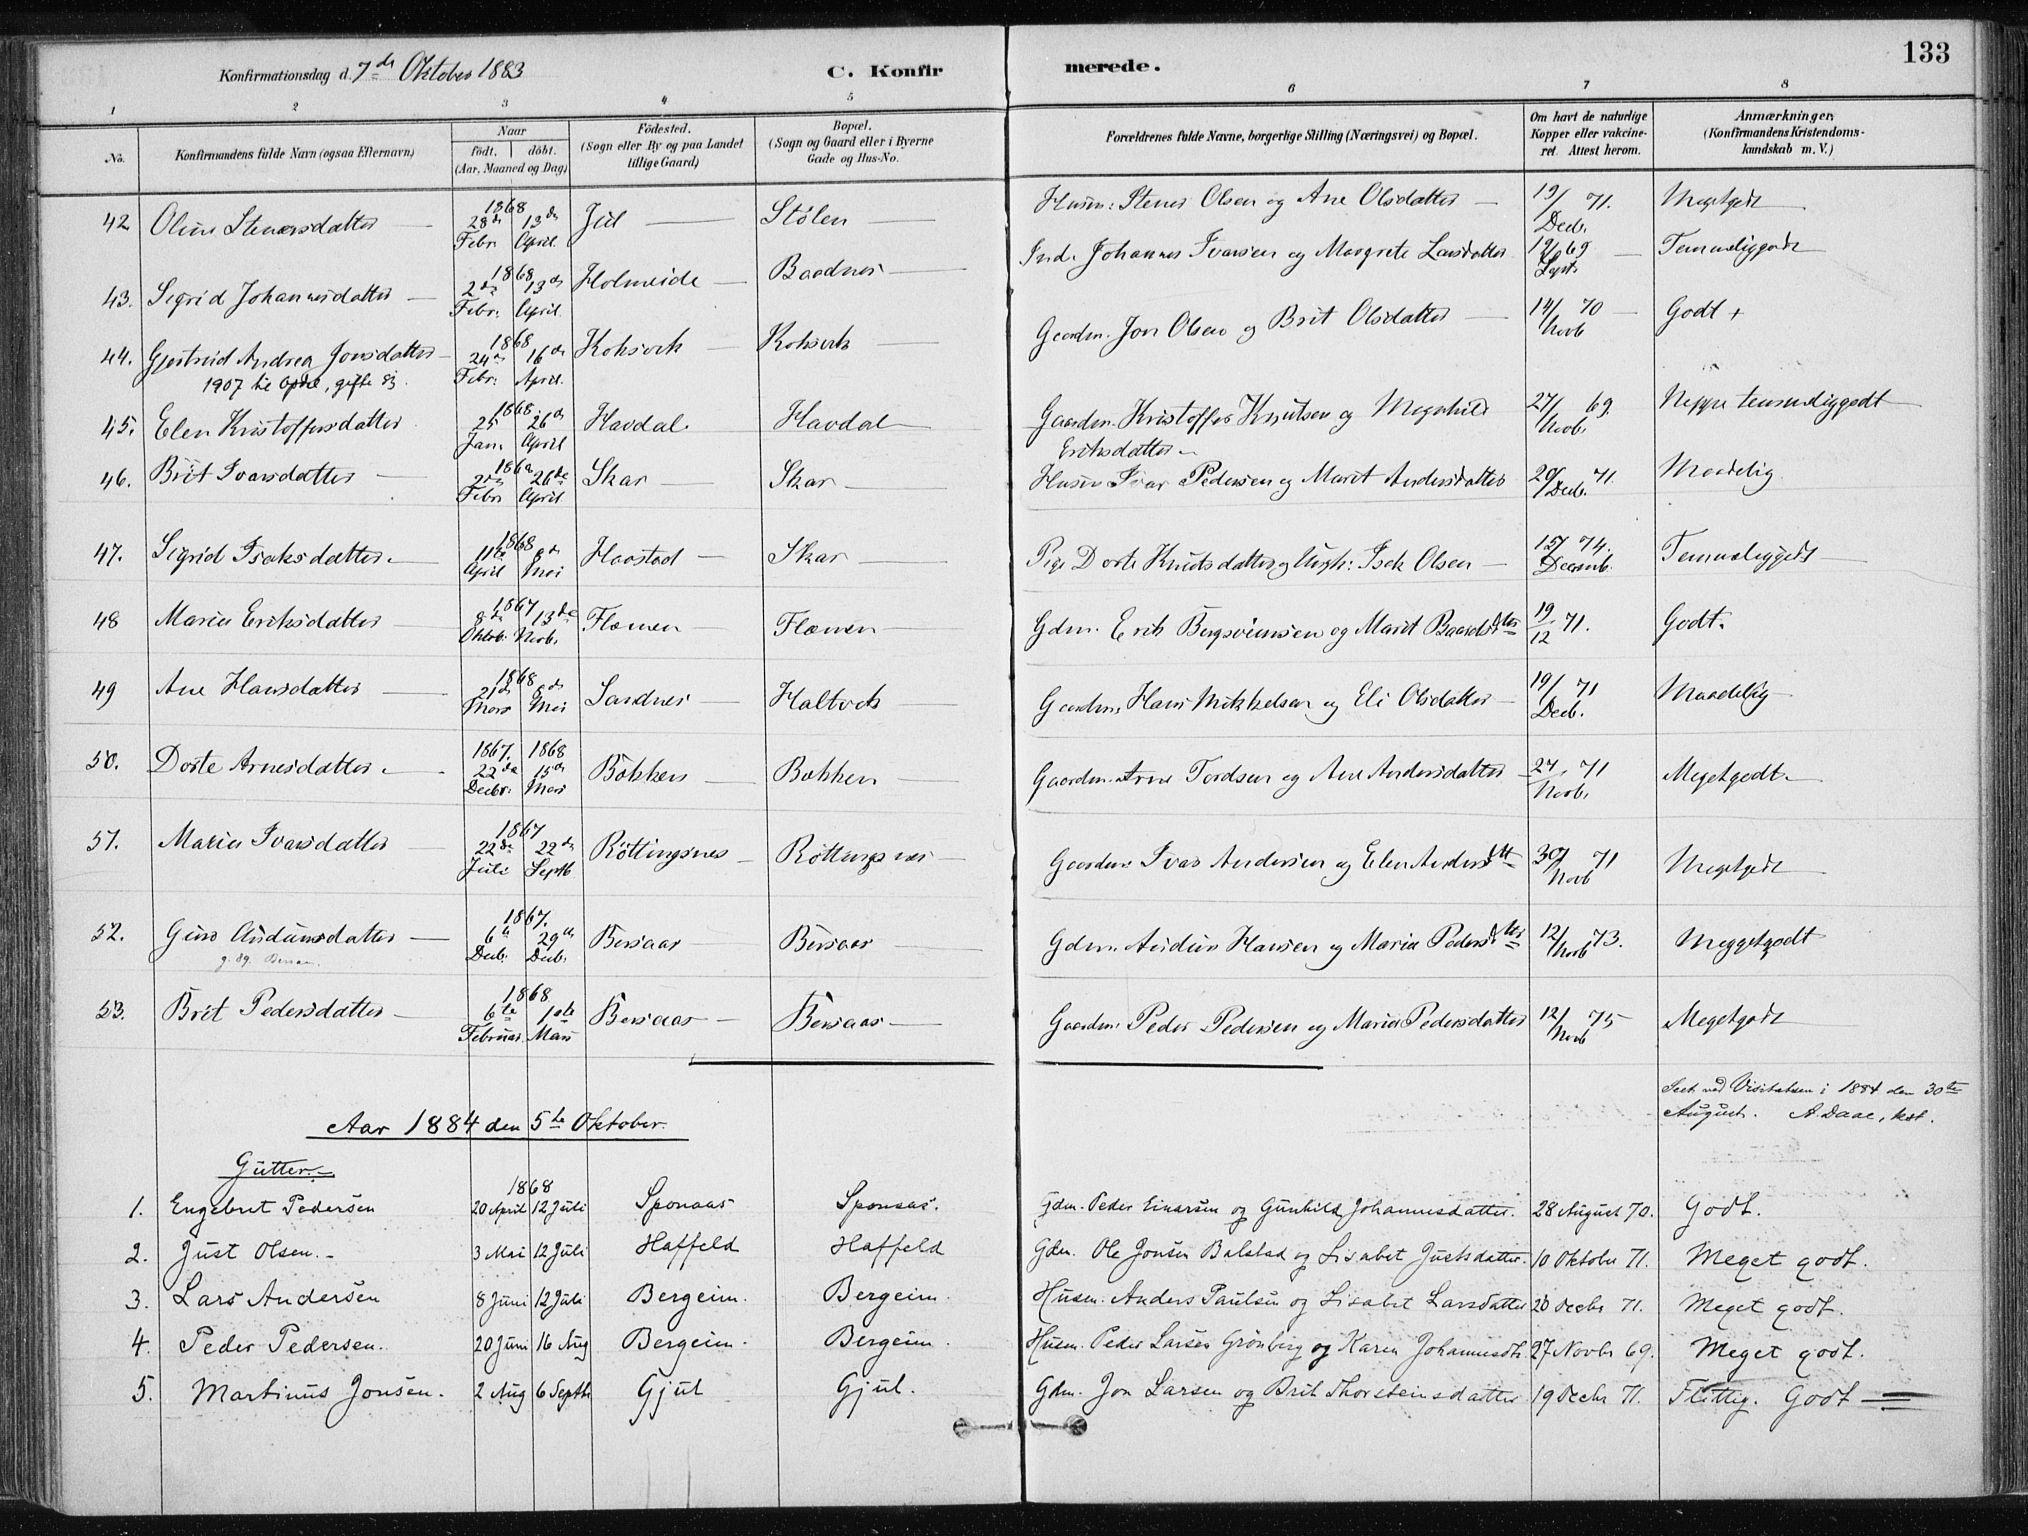 133
Konfirmationsdag d. 7de Oktober 1883 C. Konfirmerede.
1 2 3 4 5 6 7 8
No. Konfirmandens fulde Navn (ogsaa Efternavn) Naar födt, döbt. (Aar, Maaned og Dag) Födested. (Sogn eller By og paa Landet tillige Gaard) Bopæl. (Sogn og Gaard eller i Byerne Gade og Hus-No. Forældrenes fulde Navne, borgerlige Stilling (Næringsvei) og Bopæl. Om havt de naturlige Kopper eller vakcineret. Attest herom. Anmærkninger. (Konfirmandens Kristendomskundskab m. V.)
42 Oline Stenersdatter 1868 28de Febr. 13de April Stølen Husm: Stener Olsen og Ane Olsdatter 19/Decb. 71. Megetgodt
43. Sigrid Johannesdatter 1868 2de Febr. 13de April Holmeide Baadnes Ind. Johannes Ivarsen og Margrete Larsdatter 19/Sept. 69 Temmeliggodt
44. Gjertrud Andrea Jonsdatter 1868 24de Febr. 16de April. Koksvik Koksvik Gaardm. Jon Olsen og Brit Olsdatter 14/Novb 70 Godt +
1907 til
45. Elen Kristoffersdatter 1868 25 Jan. 26de April Havdal Havdal Gaardm. Kristoffer Knutsen og Magnhild Eriksdatter 27/Novb. 69. Neppe temmeliggodt
46. Brit Ivarsdatter 2de Febr 26de April Skar Skar Husm Ivar Pedersen og Marit Andersdatter 20/Decb. 71. Maadelig
47. Sigrid Isaksdatter 1868 11te April 8de Mai Haastad Skar Pige Dorte Knutsdatter og Isak Olsen 15/Decemb. 74. Temmeliggodt
48 Marie Eriksdatter 1867 8de Oktob. 13de Novb. Flemen Flemen Gdm. Erik Bergsveinsen og Marit Baardsdtter 19/12 71. Godt.
49 Ane Hansdatter 1868 21de Mars 8de Mai Sandnes Haltvik Gaardm. Hans Mikkelsen og Eli Olsdatter 19/Decb. 71 Maadelig
50. Dorte Arnesdatter 1867. 22de Decbr. 1868 15de Mars Bøkken Bakken Gaardm. Arne Tordsen og Ane Andersdatter 27/Novb. 71 Megetgodt
51. Marie Ivarsdatter 1867 22de Juli 22de Septb Röttingsnes Röttingsnes Gaardm: Ivar Andersen og Elen Andersdtt 30/Novb 71 Megetgodt
52. Guro Audunsdatter 1867. 6te Decb. 29de Decb. Bersaas Bersaas Gdm. Audun Hansen og Marie Pedersdtter 12/Novb 73. Meggetgodt
g. 89.
53. Brit Pedersdatter 1868 6te Februar 1ste Mars Bersaas Bersaas Gaardm: Peder Pedersen og Marie Pedersdatter 12/Novb 75 Megetgodt
Seet ved Visitatsen i 1884 den 30te
August. A. Daae, kst.
Aar 1884 den 5te Oktober.
Gutter.
1. Engebret Pedersen 1868 20 April 12 Juli Sponaas Sponaas. Gdm. Peder Einarsen og Gunhild Johannesdatter. 28 August 70. Godt.
2. Just Olsen. 3 Mai 12 Juli Haffeld Haffeld Gdm. Ole Jonsen Balstad og Lisabet Justsdatter. 10 Oktober 71. Meget godt.
3. Lars Andersen 8 Juni 12 Juli Bergeim. Bergeim. Husm. Anders Paulsen og Lisabet Larsdatter 20 Decbr 71. Meget godt.
4. Peder Pedersen. 20 Juni 16 Aug Bergeim. Bergeim. Husm. Peder Larsen Grönberg og Karen Johannesdtr. 27 Novbr 69. Meget godt.
5. Martinus Jonsen. 2 Aug 6 Septbr Gjul Gjul. Gdm. Jon Larsen og Brit Thorsteinsdatter 19 Decbr 71. Flittig. Godt